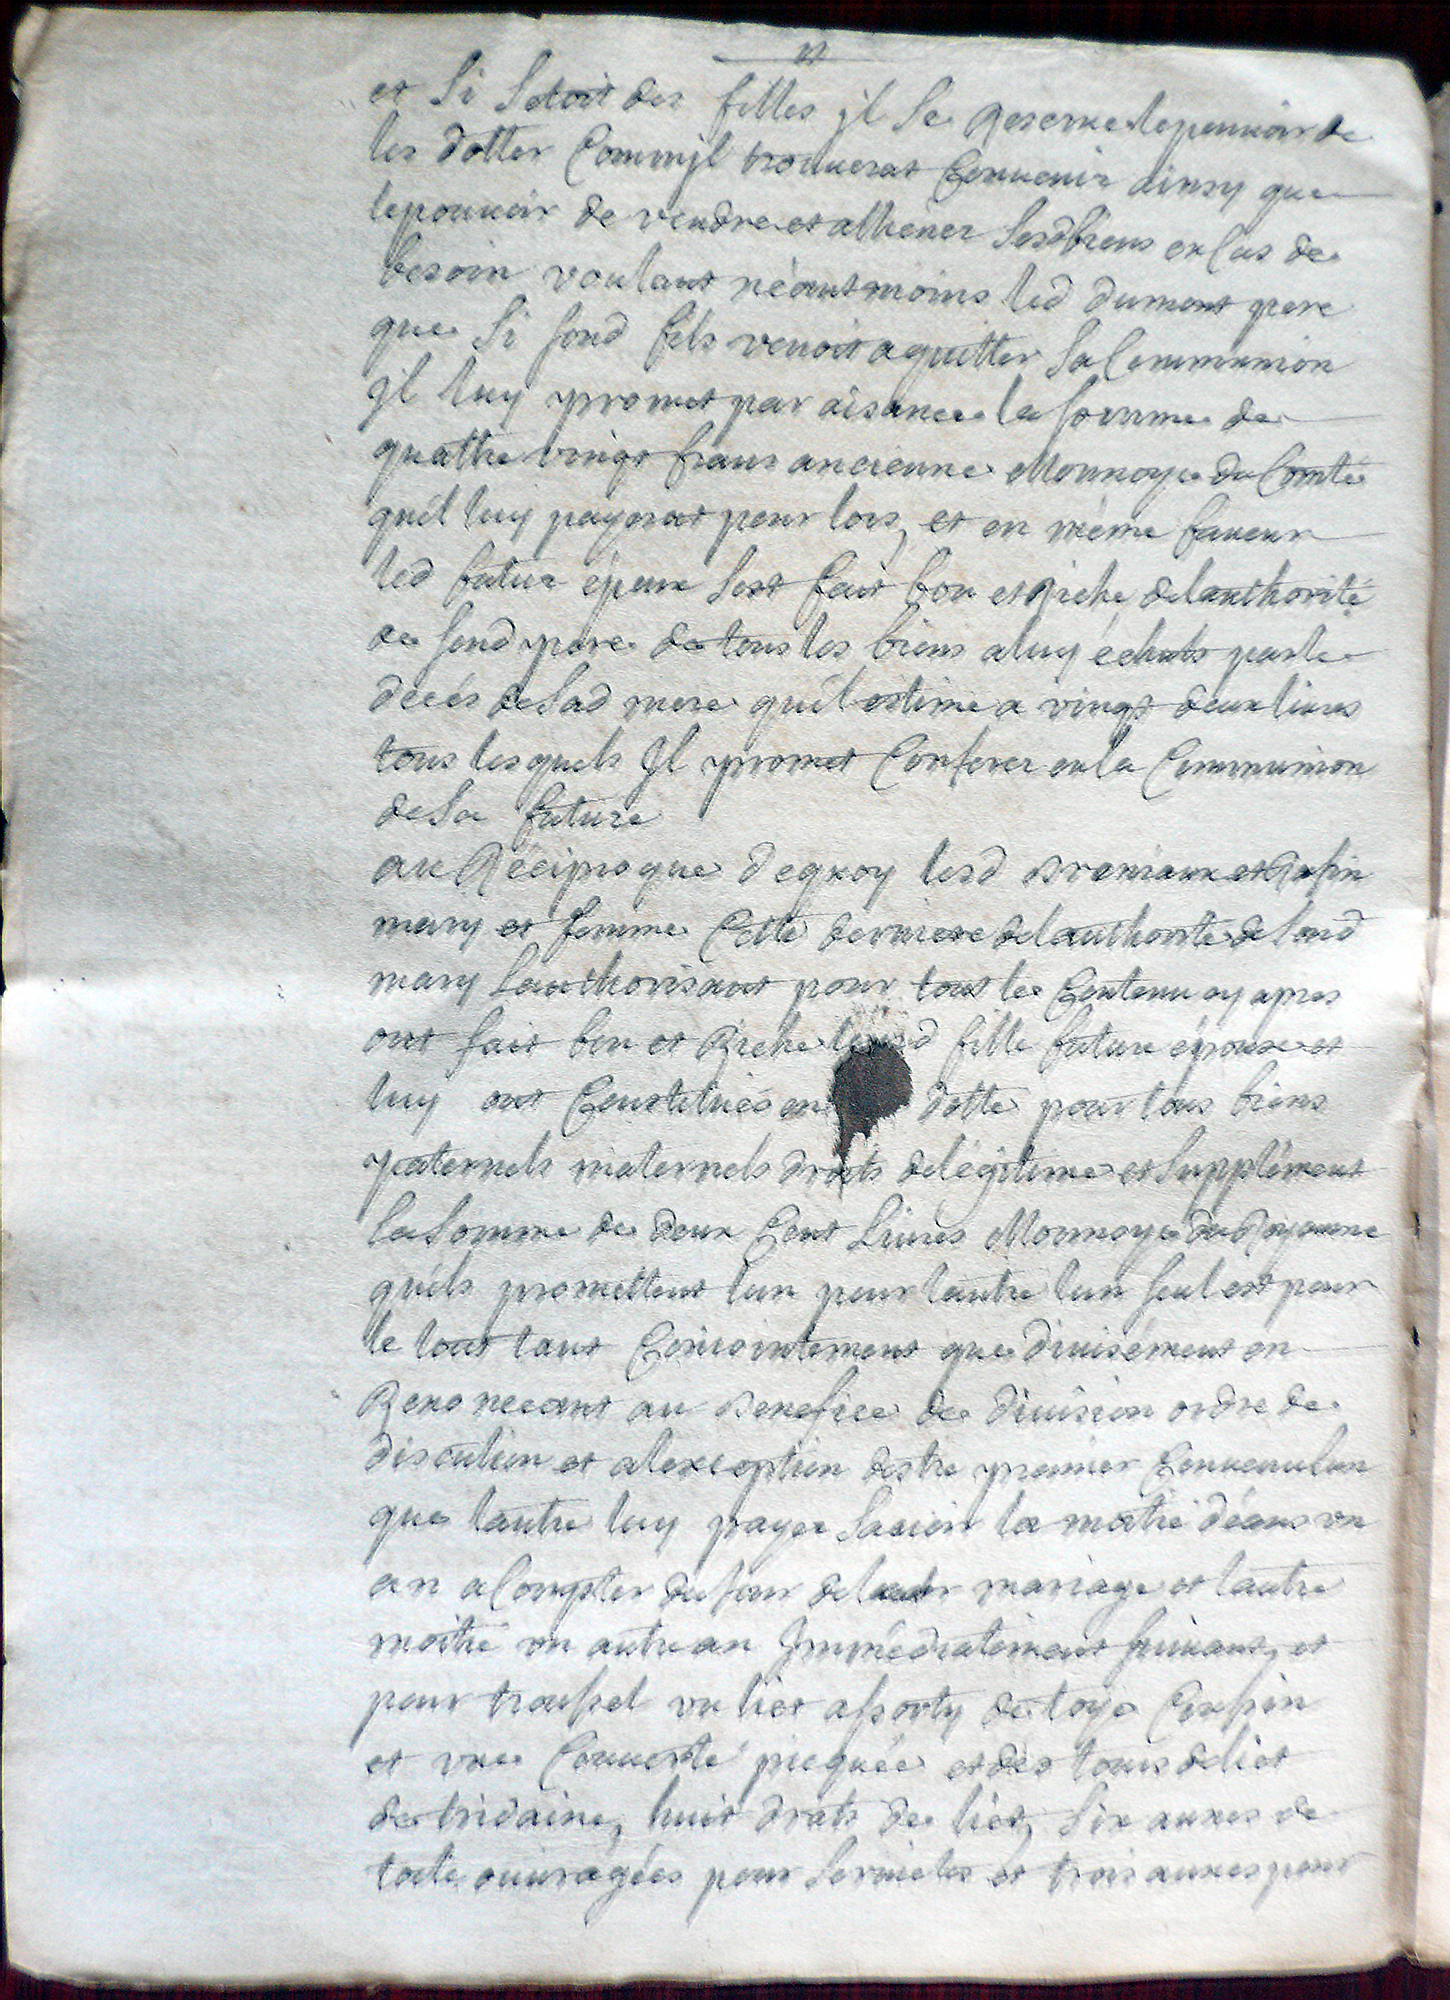 et si setoit des filles jl se reserve lepouuoir de
les dotter Commjl trouuerat Conuenir ainsy que
lepouuoir de vendre et alhiener sesdbiens en Cas de
besoin voulant néantmoins led dumont pere
que si sond fils venoit a quitter sa Communion
jl luy promet par aisance la somme de
quattre vingt frans ancienne Monnoye du Comté
quél luy payerat pour lors, et en méme faueur
led futur époux sest fait bon et Riche delauthorité
de sond pere de tous les biens a luy échuts par le
decés de sad mere quél estime a vingt deux liures
tous lesquels Jl promet Conferer en la Communion
de sa future
au Réciproque dequoy lesd et
mary et femme Cette derniere delauthorité de sond
mary Lauthorisant pour tout le Contenu cy apres
ont fait bon et Riche fille future épouse et
luy ont Constituéé en dotte pour tous biens
paternels maternels droits delégitime et supplément
la somme de deux Cent Liures Monnoye du Royaume
quéls promettent lun pour lautre lun seul et pour
le tout tant Conjointement que diuisément en
Renonceant au Benefice de diuision ordre de
discution et alexception destre premier Conuenu lun
que lautre luy payer sauoir la moitié déans vn
an a Compter du jour de leur mariage et lautre
moitié vn autre an Jmmédiatement suiuant, et
pour troussel vn lict assorty de taye Cussin
et vne Couuerte picquée et des tours de lict
de tridaine, huit draps de lict, six aunes de
toile ouuragées pour seruietes et trois aunes pour